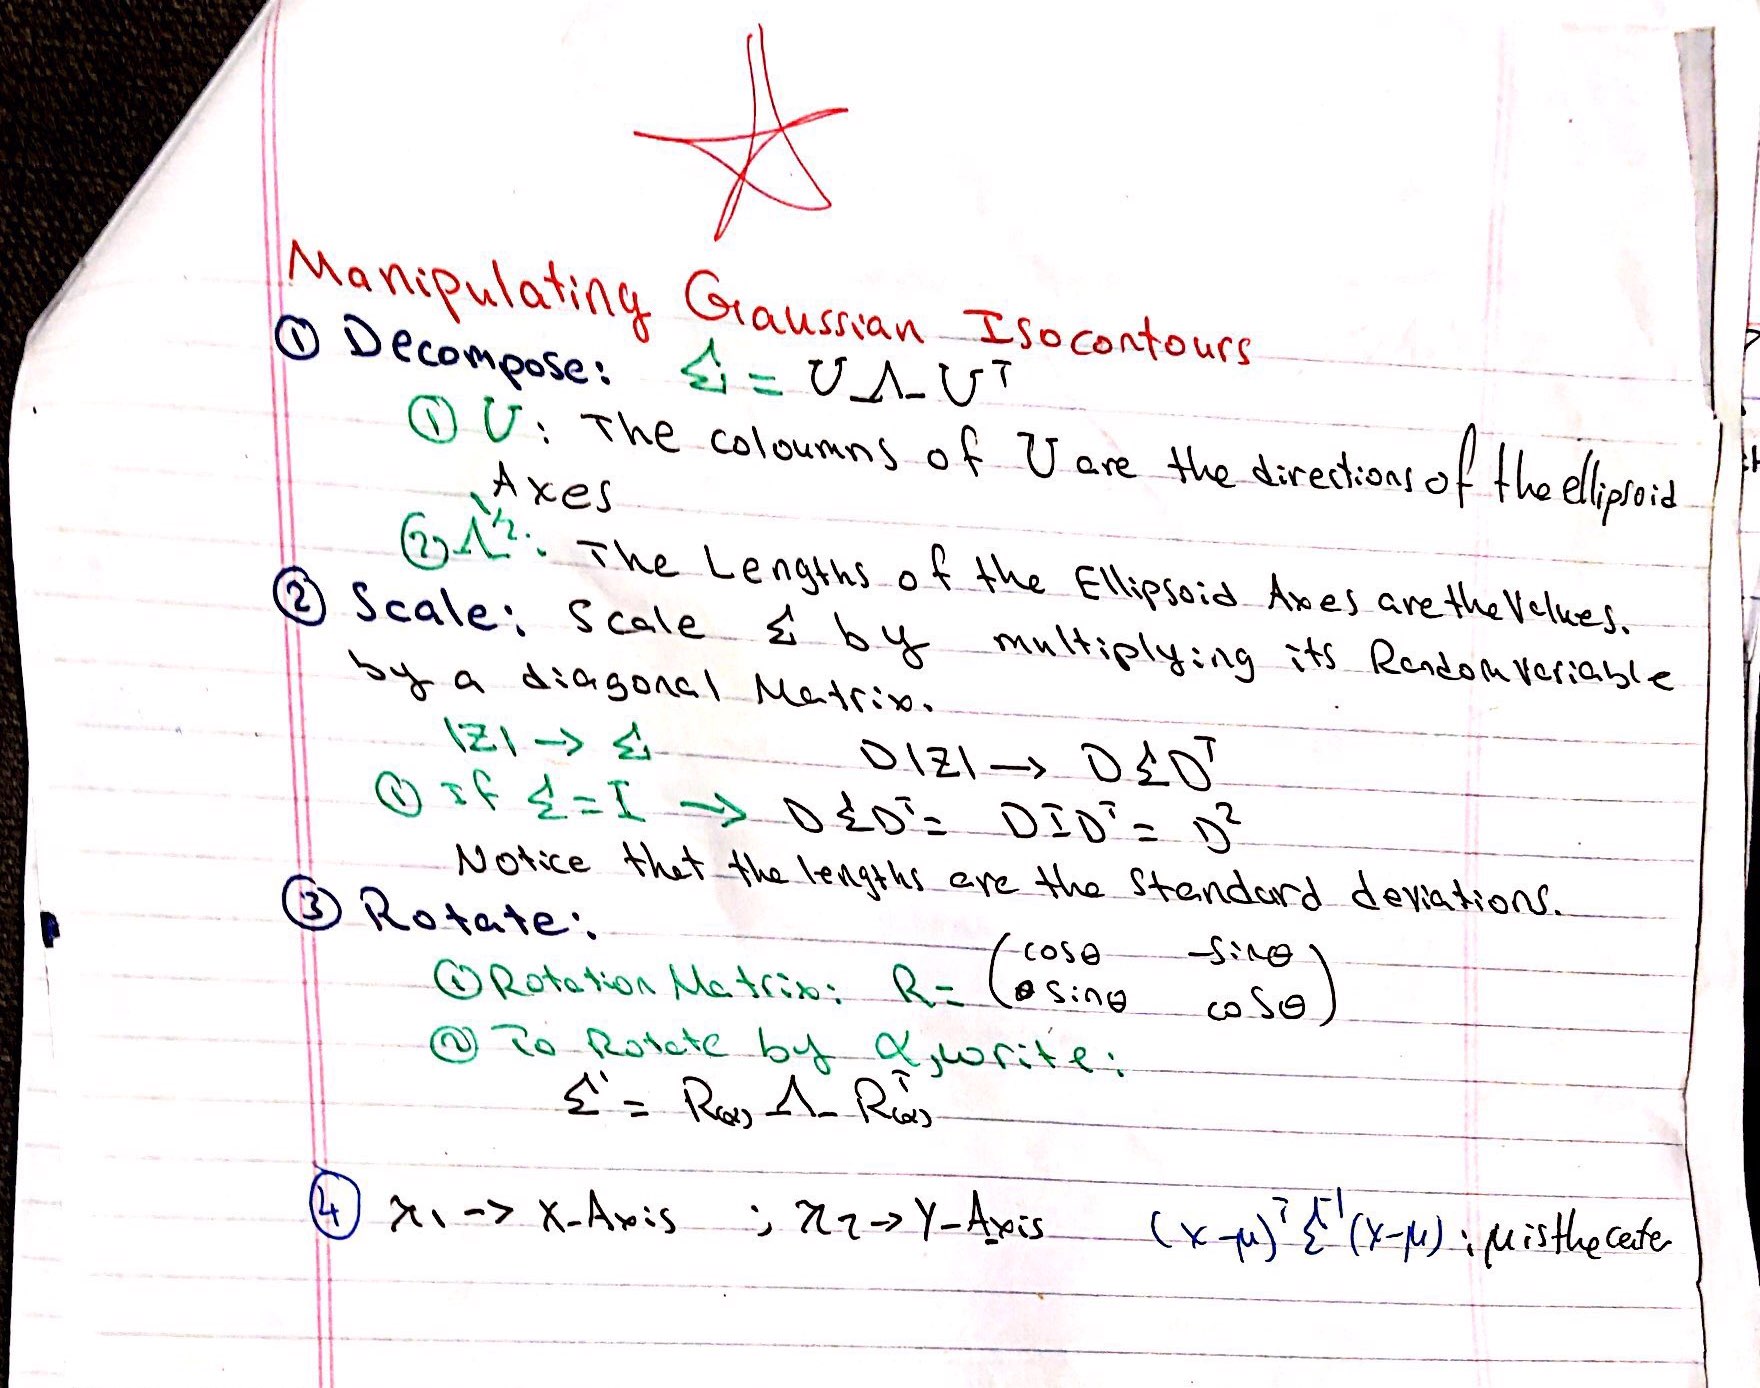 Manipulating Gaussian Isocontours
① Decompose: Σ = U Λ Uᵀ
① U: The coloumns of U are the directions of the ellipsoid
Axes
② Λ^½: The Lengths of the Ellipsoid Axes are the Values.
② Scale: Scale Σ by multiplying its Random variable
by a diagonal Matrix.
|Z| → Σ D|Z| → DΣDᵀ
① If Σ=I → DΣDᵀ = DIDᵀ = D²
Notice that the lengths are the Standard deviations.
③ Rotate:
① Rotation Matrix: R = (cosθ -sinθ
sinθ cosθ)
② To Rotate by α, write:
Σ' = R(α) Λ R(α)ᵀ
④ x₁ -> X-Axis ; x₂ → Y-Axis (x-μ)ᵀ Σ⁻¹ (x-μ) ; μ is the ceter